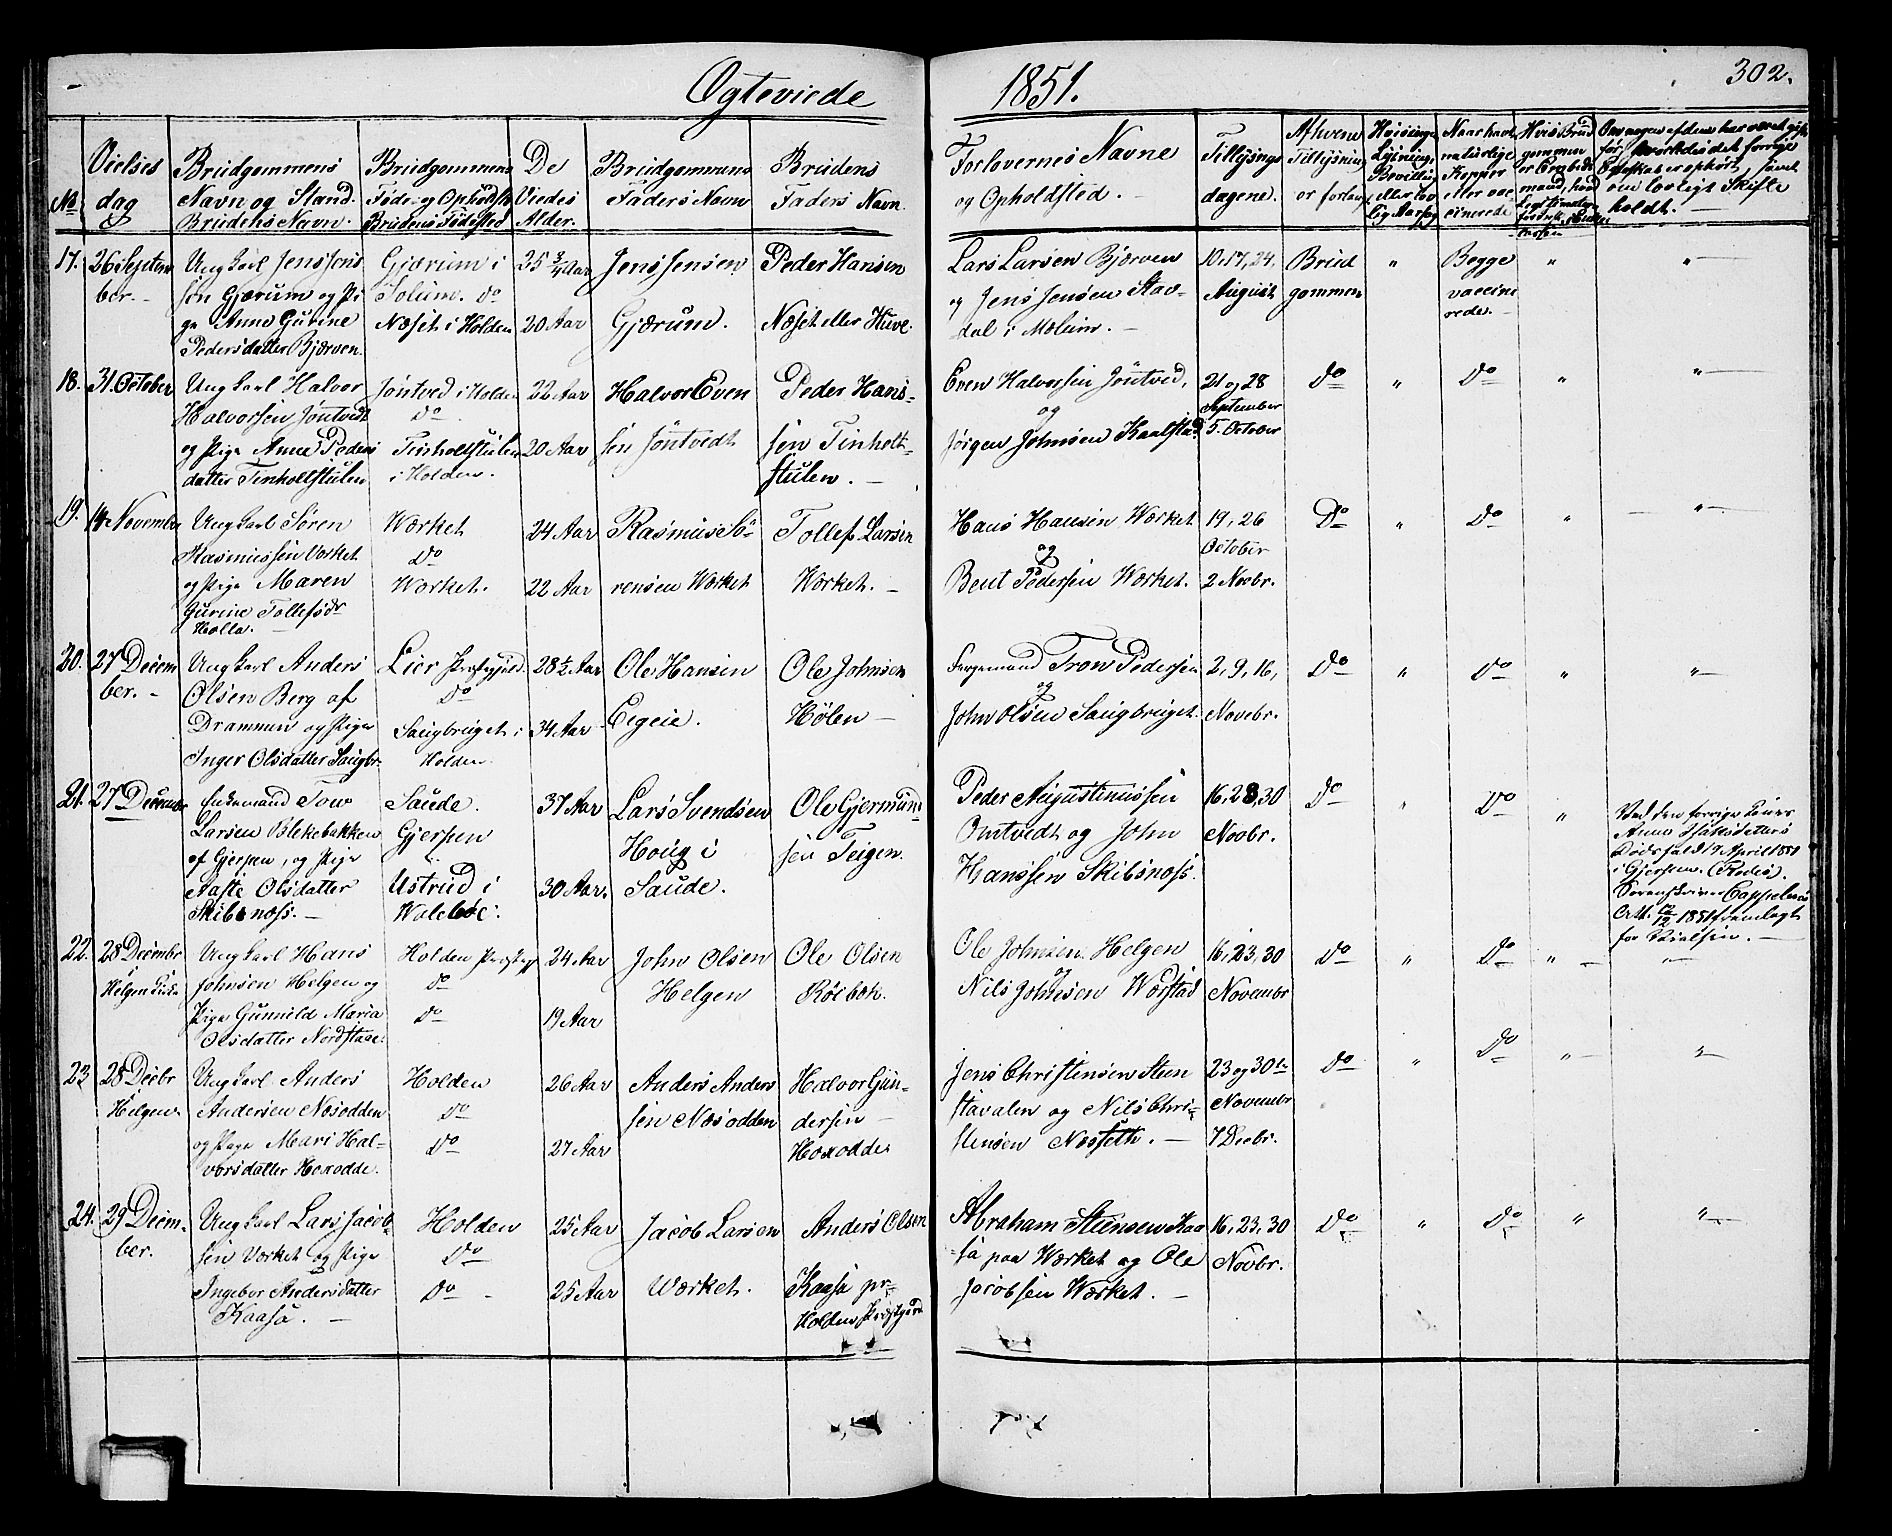 Ogteviede 1851. 302.
No
Vielses
dag
Brudgommens
Navn og Stand.
Brudens Navn.
Brudgommens
Føde- og Opholdst.
Brudens Fødested
De
Viedes
Alder.
Brudgommens
Faders Navn
Brudens
Faders Navn.
Forlovernes Navne
og Opholdsted.
Tillysnings
dagene.
Af hvem
Tillysning
er forlangt
17.
26 Septem
ber.
Ungkarl Jens Jens
sen Gjærum og Pi
ge Anne Gurine
Pedersdatter Bjærven.
Gjærum i
Solum. Do
Næset i Holden
25 3/4 Aar
20 Aar
Jens Jensen
Gjærum.
Peder Hansen
Næset eller Huvel
Lars Larsen Bjærven
og Jens Jensen Stav-
dal i Melum.
10, 17, 24.
August
Brud
gommen
"
Begge
vaccine
rede.
"
"
18.
31. October
Ungkarl Halvor
Halvorsen Jøntvedt
og Pige Anne Peders
datter Tinholtstulen
Jøntved i Holden
Do
Tinholtstulen
i Holden.
22 Aar
20 Aar
Halvor Even
sen Jøntvedt
Peder Hans-
sen Tinholt-
stulen.
Even Halvorsen Jøntved,
og
Jørgen Johnsen Kaalstad
21 og 28
September
5. October
Do
"
Do
"
"
19.
14 Novembr
Ungkarl Søren
Rasmussen Værket
og Pige Maren
Gurine Tollefsdr
Holla.
Værket
Do
Værket.
24 Aar
22 Aar
Rasmus Sö-
rensen Værket
Tollef Larsen
Værket.
Hans Hansen Værket
og
Bent Pedersen Værket.
19, 26
October
2 Novbr.
Do
"
Do
"
"
20.
27 Decem
ber.
Ungkarl Anders
Olsen Berg af
Drammen og Pige
Inger Olsdatter Saugbr.
Lier Præstegjeld.
Do
Saugbruget i
Holden.
28 1/2 Aar
34 Aar
Ole Hansen
Egeie.
Ole Johnsen
Hølen
Tron Pedersen
og
John Olsen Saugbruget.
2, 9, 16,
Novebr.
Do
"
Do
"
"
21.
27 Decembr
Enkemand Tow
Larsen Blekebakken
af Gjerpen, og Pige
Aaste Olsdatter
Skibsnæss.
Saude.
Gjerpen
Ustrud i
Valebøe.
37 Aar
30 Aar.
Lars Svendsen
Houg i
Saude.
Ole Gjermund
sen Teigen.
Peder Augustinussen
Omtvedt og John
Hanssen Skibsnæss.
16, 23, 30
Novbr.
Do
"
Do
"
Ved den forrige Kones
Anne Isaksdatters
Dødsfald 17 April 1851
i Gjerpen.
Sorenskriver Cappelens
Att. 12/12 1851 fremlagt
for Vielsen.
22.
28 Decembr
Helgen Kirke
Ungkarl Hans
Johnsen Helgen og
Pige Gunnild Maria
Olsdatter Nordstaae.
Holden Præstegj
Do
Do
24 Aar
19 Aar
John Olsen
Helgen
Ole Olsen
Rølbok.
Ole Johnsen Helgen
og
Nils Johnsen Værstad
16, 23, 30
Novembr
Do
"
Do
"
"
23
28 Decbr
Helgen.
Ungkarl Anders
Andersen Næsodden
og Pige Mari Hal-
vorsdatter Hoxodde.
Holden
Do
Do
26 Aar
27 Aar
Anders Anders
sen Næsodden
Halvor Gun-
dersen
Hoxodde
Jens Christensen Steen
stavalen og Nils Chri-
stensen Næsseth.
23 og 30te
Novembr
7 Decbr.
Do
"
Do
"
"
24.
29 Decem-
ber.
Ungkarl Lars Jacob-
sen Værket og Pige
Ingebor Andersdatter
Kaasa.
Holden
Do
Do
25 Aar
25 Aar
Jacob Larsen
Værket.
Anders Olsen
Kaasa pr
Holden Præstgaard
Abraham Steensen Kaa
sa paa Værket og Ole
Jacobsen Værket.
16, 23, 30
Novbr.
Do
"
Do
"
"